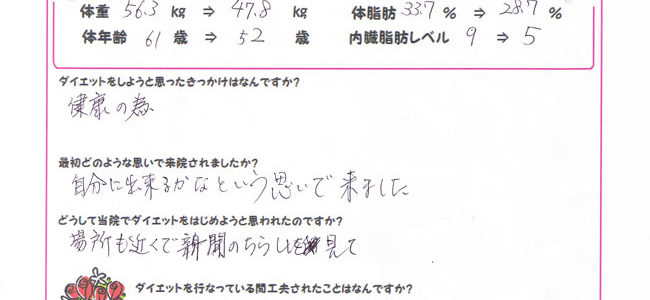 体重 56.3 kg ⇒ 47.8 kg 体脂肪 33.7 % ⇒ 28.7 %
体年齢 61 歳 ⇒ 52 歳 内臓脂肪レベル 9 ⇒ 5
ダイエットをしようと思ったきっかけはなんですか?
健康の為
最初どのような思いで来院されましたか?
自分に出来るかなという思いで来ました
どうして当院でダイエットをはじめようと思われたのですか?
場所も近くで新聞のちらしを見て
ダイエットを行なっている間工夫されたことはなんですか?